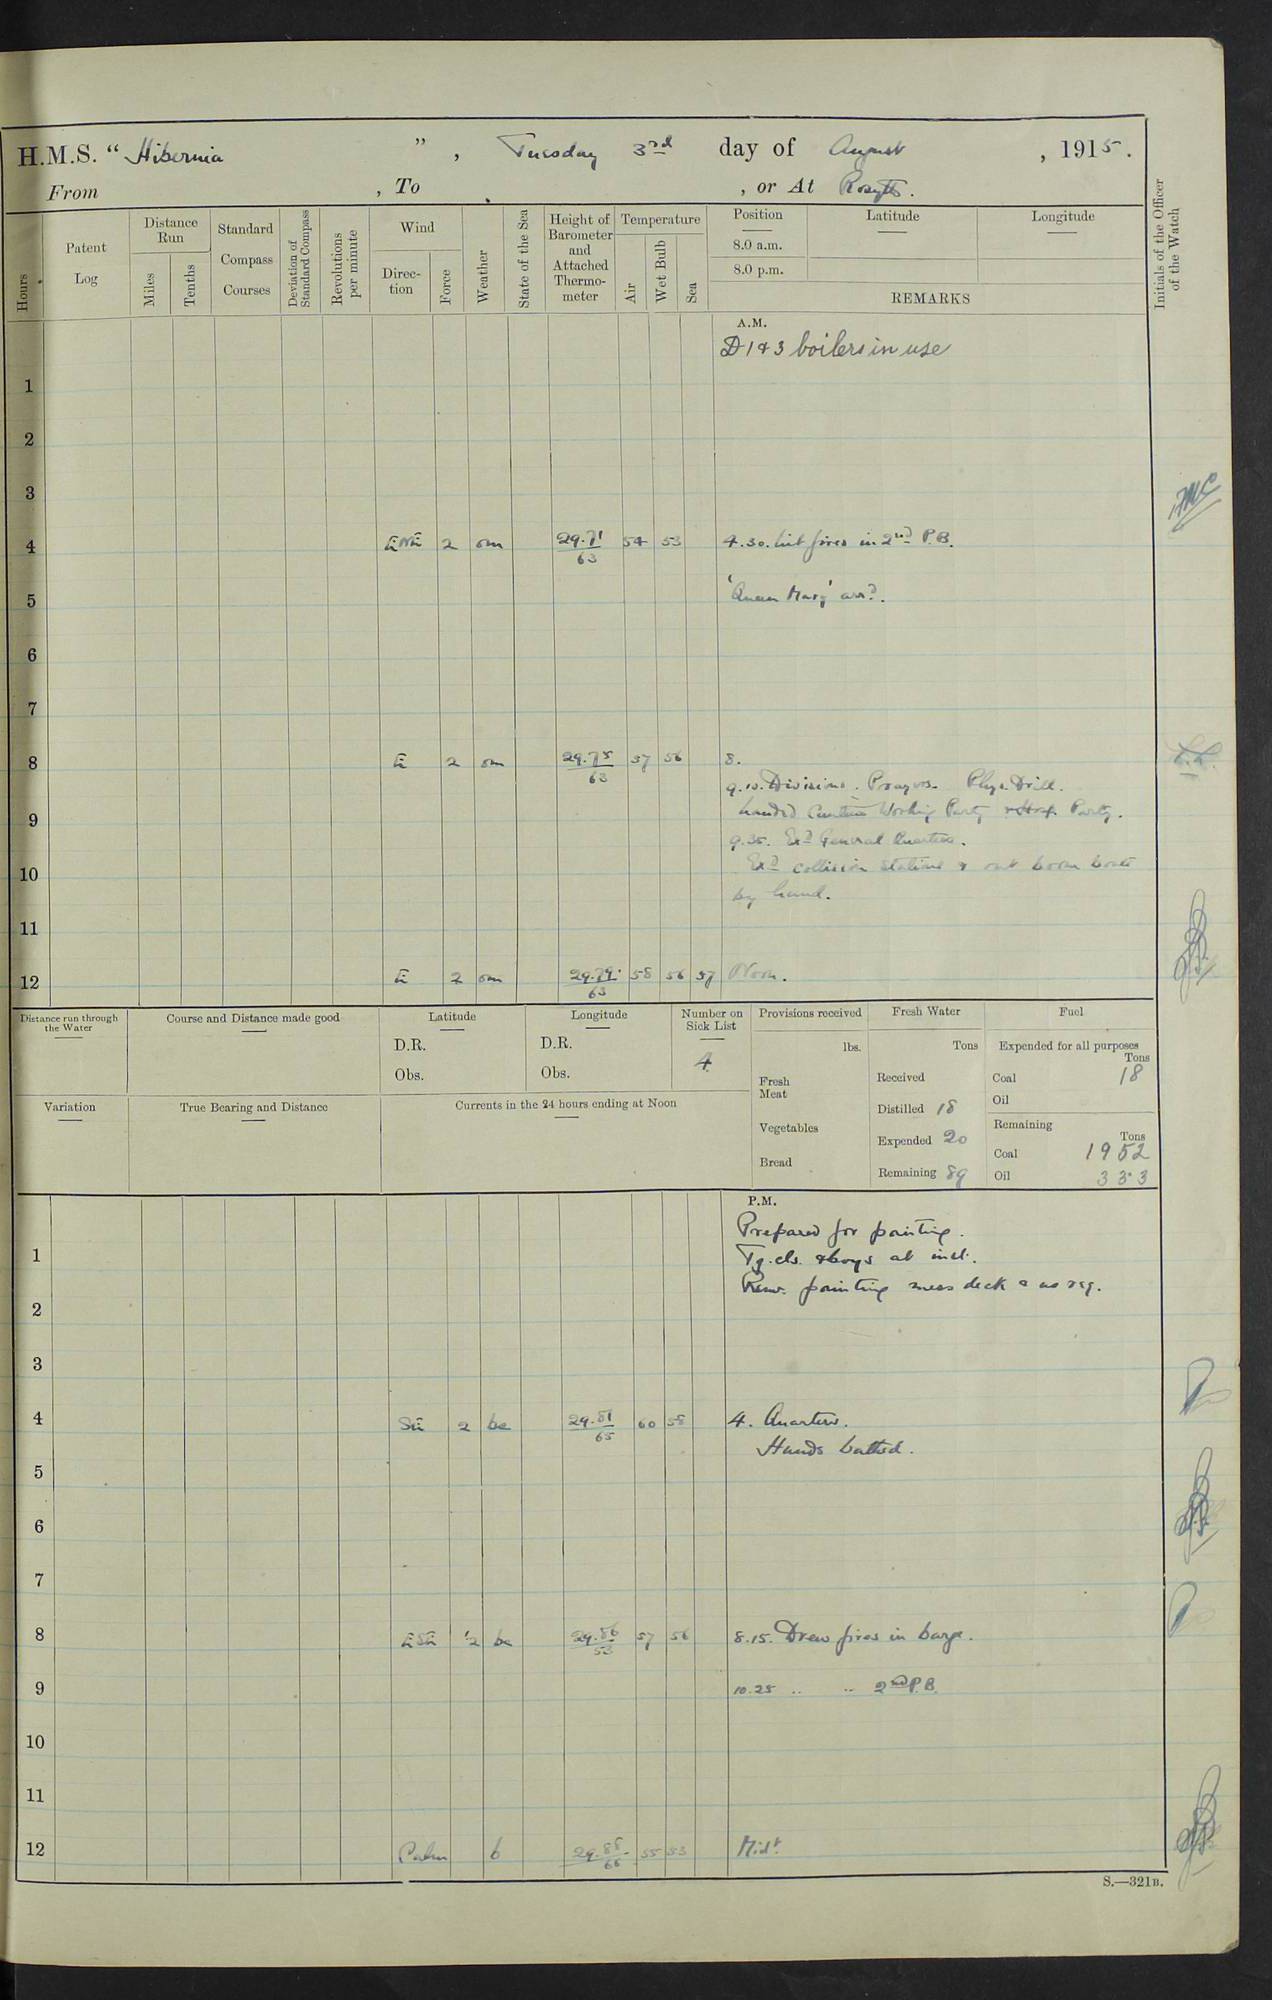 H.M.S. "Hibernia", Tuesday 3rd day of August, 1915.
From , To , or At Rosyth.
Hours
Patent Log
Distance Run
Miles
Tenths
Standard Compass Courses
Deviation of Standard Compass
Revolutions per minute
Wind
Direction
Force
Weather
State of the Sea
Height of Barometer and Attached Thermometer
Temperature
Air
Wet Bulb
Sea
Position
8.0 a.m.
8.0 p.m.
Latitude
Longitude
REMARKS
Initials of the Officer of the Watch
A.M.
D 1 & 3 boilers in use
1
2
3
4 ENE 2 om 29.71 63 54 53 4.30. Lit fires in 2nd P.B.
5 'Queen Mary' arrd.
6
7
8 E 2 om 29.75 63 57 56 8.
9.10. Divisions. Prayers. Phys. Drill.
9 Landed Canteen Working Party Party.
9.35. Exd General Quarters.
10 Exd collision stations & out boom boats
by hand.
11
12 E 2 om 29.79 63 58 56 57 Noon.
Distance run through the Water
Course and Distance made good
Latitude
D.R.
Obs.
Longitude
D.R.
Obs.
Number on Sick List
4
Provisions received
lbs.
Fresh Meat
Vegetables
Bread
Fresh Water
Tons
Received
Distilled 18
Expended 20
Remaining 89
Fuel
Expended for all purposes
Tons
Coal 18
Oil
Remaining
Tons
Coal 1952
Oil 333
Variation
True Bearing and Distance
Currents in the 24 hours ending at Noon
P.M.
Prepared for painting.
1 Tg. cls. & boys at inst.
painting mess deck & as req.
2
3
4 SE 2 bc 29.81 65 60 58 4. Quarters.
Hands bathed.
5
6
7
8 ESE 1/2 bc 29.86 53 57 56 8.15. Drew fires in barge.
9 10.25 " " 2nd P.B.
10
11
12 Calm b 29.88 66 55 53 Midt.
S.—321B.